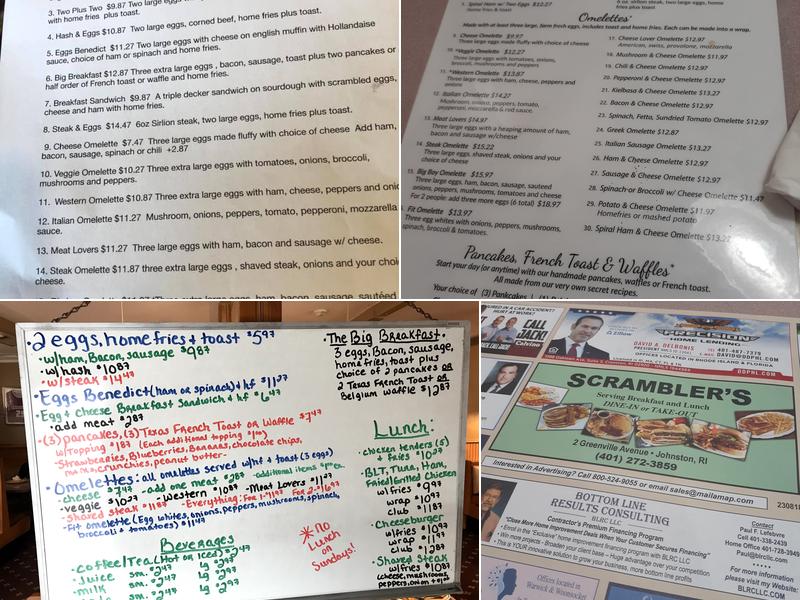 3. Two Plus Two $9.87 Two large
with home fries plus toast.
4. Hash & Eggs $10.87 Two large eggs, corned beef, home fries plus toast.
5. Eggs Benedict $11.27 Two large eggs with cheese on english muffin with Hollandaise
sauce, choice of ham or spinach and home fries.
6. Big Breakfast $12.87 Three extra large eggs , bacon, sausage, toast plus two pancakes or
half order of French toast or waffle and home fries.
7. Breakfast Sandwich $9.87 A triple decker sandwich on sourdough with scrambled eggs,
cheese and ham with home fries.
8. Steak & Eggs $14.47 6oz Sirlion steak, two large eggs, home fries plus toast.
9. Cheese Omelette $7.47 Three large eggs made fluffy with choice of cheese Add ham,
bacon, sausage, spinach or chili +2.87
10. Veggie Omelette $10.27 Three extra large eggs with tomatoes, onions, broccoli,
mushrooms and peppers.
11. Western Omelette $10.87 Three extra large eggs with ham, cheese, peppers and onio
12. Italian Omelette $11.27 Mushroom, onions, peppers, tomato, pepperoni, mozzarella
sauce.
13. Meat Lovers $11.27 Three large eggs with ham, bacon and sausage w/ cheese.
14. Steak Omelette $11.87 three extra large eggs , shaved steak, onions and your choi
cheese.
Spiral Ham w/ Two Eggs $12.27
Home fries & toast
6 oz. sirloin steak, two large eggs,
home fries plus toast
Omelettes*
Made with at least three large, farm fresh eggs, includes toast and home fries. Each can be made into a wrap.
9. Cheese Omelette $9.97
Three large eggs made fluffy with choice of cheese
10. *Veggie Omelette $12.27
Three large eggs with tomatoes, onions,
broccoli, mushrooms and peppers
11. *Western Omelette $13.87
Three large eggs with ham, cheese, peppers and
onions
12. Italian Omelette $14.27
Mushroom, onions, peppers, tomato,
pepperoni, mozzarella & red sauce.
13. Meat Lovers $14.97
Three large eggs with a heaping amount of ham,
bacon and sausage w/cheese
14. Steak Omelette $15.22
Three large eggs, shaved steak, onions and your
choice of cheese
15. Big Boy Omelette $15.97
Three large eggs, ham, bacon, sausage, sauteed
onions, peppers, mushrooms, tomatoes and cheese
For 2 people: add three more eggs (6 total) $18.97
Fit Omelette $13.97
Three egg whites with onions, peppers, mushrooms,
spinach, broccoli & tomatoes.
17. Cheese Lover Omelette $12.97
American, swiss, provolone, mozzarella
18. Mushroom & Cheese Omelette $11.97
19. Chili & Cheese Omelette $12.97
20. Pepperoni & Cheese Omelette $12.97
21. Kielbasa & Cheese Omelette $13.27
22. Bacon & Cheese Omelette $12.97
23. Spinach, Fetta, Sundried Tomato Omelette $12.97
24. Greek Omelette $12.87
25. Italian Sausage Omelette $13.27
26. Ham & Cheese Omelette $12.97
27. Sausage & Cheese Omelette $12.97
28. Spinach or Broccoli w/ Cheese Omelette $11.47
29. Potato & Cheese Omelette $11.97
Homefries or mashed potato
30. Spiral Ham & Cheese Omelette $13.27
Pancakes, French Toast & Waffles*
Start your day (or anytime) with our handmade pancakes, waffles or French toast.
All made from our very own secret recipes.
Your choice of (3) Pankcakes
2 eggs, homefries + toast $5.97
• w/ham, Bacon, sausage $9.87
• w/hash $10.87
• w/steak $14.47
• Eggs Benedict (ham or spinach) + hf $11.27
• Egg + cheese Breakfast Sandwich + hf $6.47
• add meat $2.87
• (3) pancakes, (3) Texas French Toast or Waffle $7.47
w/Topping $9.87 (Each additional topping
Strawberries, Blueberries, Bananas, chocolate chips,
nuts, crunchies, peanut butter-
• Omelettes: all omelettes served w/hf + toast (3 eggs)
• cheese $7.47 - add one meat $2.87 - additional items
• veggie $10.27 - Western $10.87 - Meat Lovers $11.27
• Shaved steak $11.87 - Everything: For 1-$11.97 For 2-$16.97
• Fit omelette (Egg whites, onions, peppers, mushrooms, spinach,
broccoli + tomatoes) $11.47
Beverages
• Coffee/Tea (Hot or Iced) $2.47
• Juice sm. $2.47 Lg $2.97
• milk sm. $2.47 Lg $2.97
The Big Breakfast-
3 eggs, Bacon, Sausage,
home fries, toast plus
choice of 2 pancakes or
2 Texas French Toast or
Belgium waffle $12.87
Lunch:
• chicken tenders (5)
+ fries $10.97
• BLT, Tuna, Ham,
Fried/Grilled Chicken
w/fries $9.97
wrap $10.97
club $11.87
• Cheeseburger
w/fries $10.97
wrap $11.97
club $12.87
• Shaved Steak
w/fries $10.87
(cheese, mushrooms,
peppers, onion
* no
Lunch
on
Sundays!
INJURED IN A CAR ACCIDENT?
HURT AT WORK?
CALL
JACK!
Calvino
PRECISION
HOME LENDING
DAVID A. DELBONIS
PRESIDENT
401-487-7379
DAVID@DDPHL.COM
OFFICES LOCATED IN RHODE ISLAND & FLORIDA
DDPHL.COM
SCRAMBLER'S
Serving Breakfast and Lunch
DINE-IN or TAKE-OUT
2 Greenville Avenue • Johnston, RI
(401) 272-3859
Interested in Advertising? Call 800-524-9055 or email sales@mailamap.com
BOTTOM LINE
RESULTS CONSULTING
BLRC LLC
Contractor's Premium Financing Program
"Close More Home Improvement Deals When Your Customer Secures Financing"
• Enroll in the "Exclusive" home improvement financing program with BLRC LLC
• Win more projects • Broaden your client base • Huge advantage over your competition
• This is YOUR innovative solution to grow your business, more bottom line profits
Contact
Paul F. Lefebvre
Cell 401-338-2439
Home Office 401-728-3945
Paul@blrcllc.com
For more information
please visit my Website:
BLRCLLC.COM
Located in
Warwick & Woonsocket